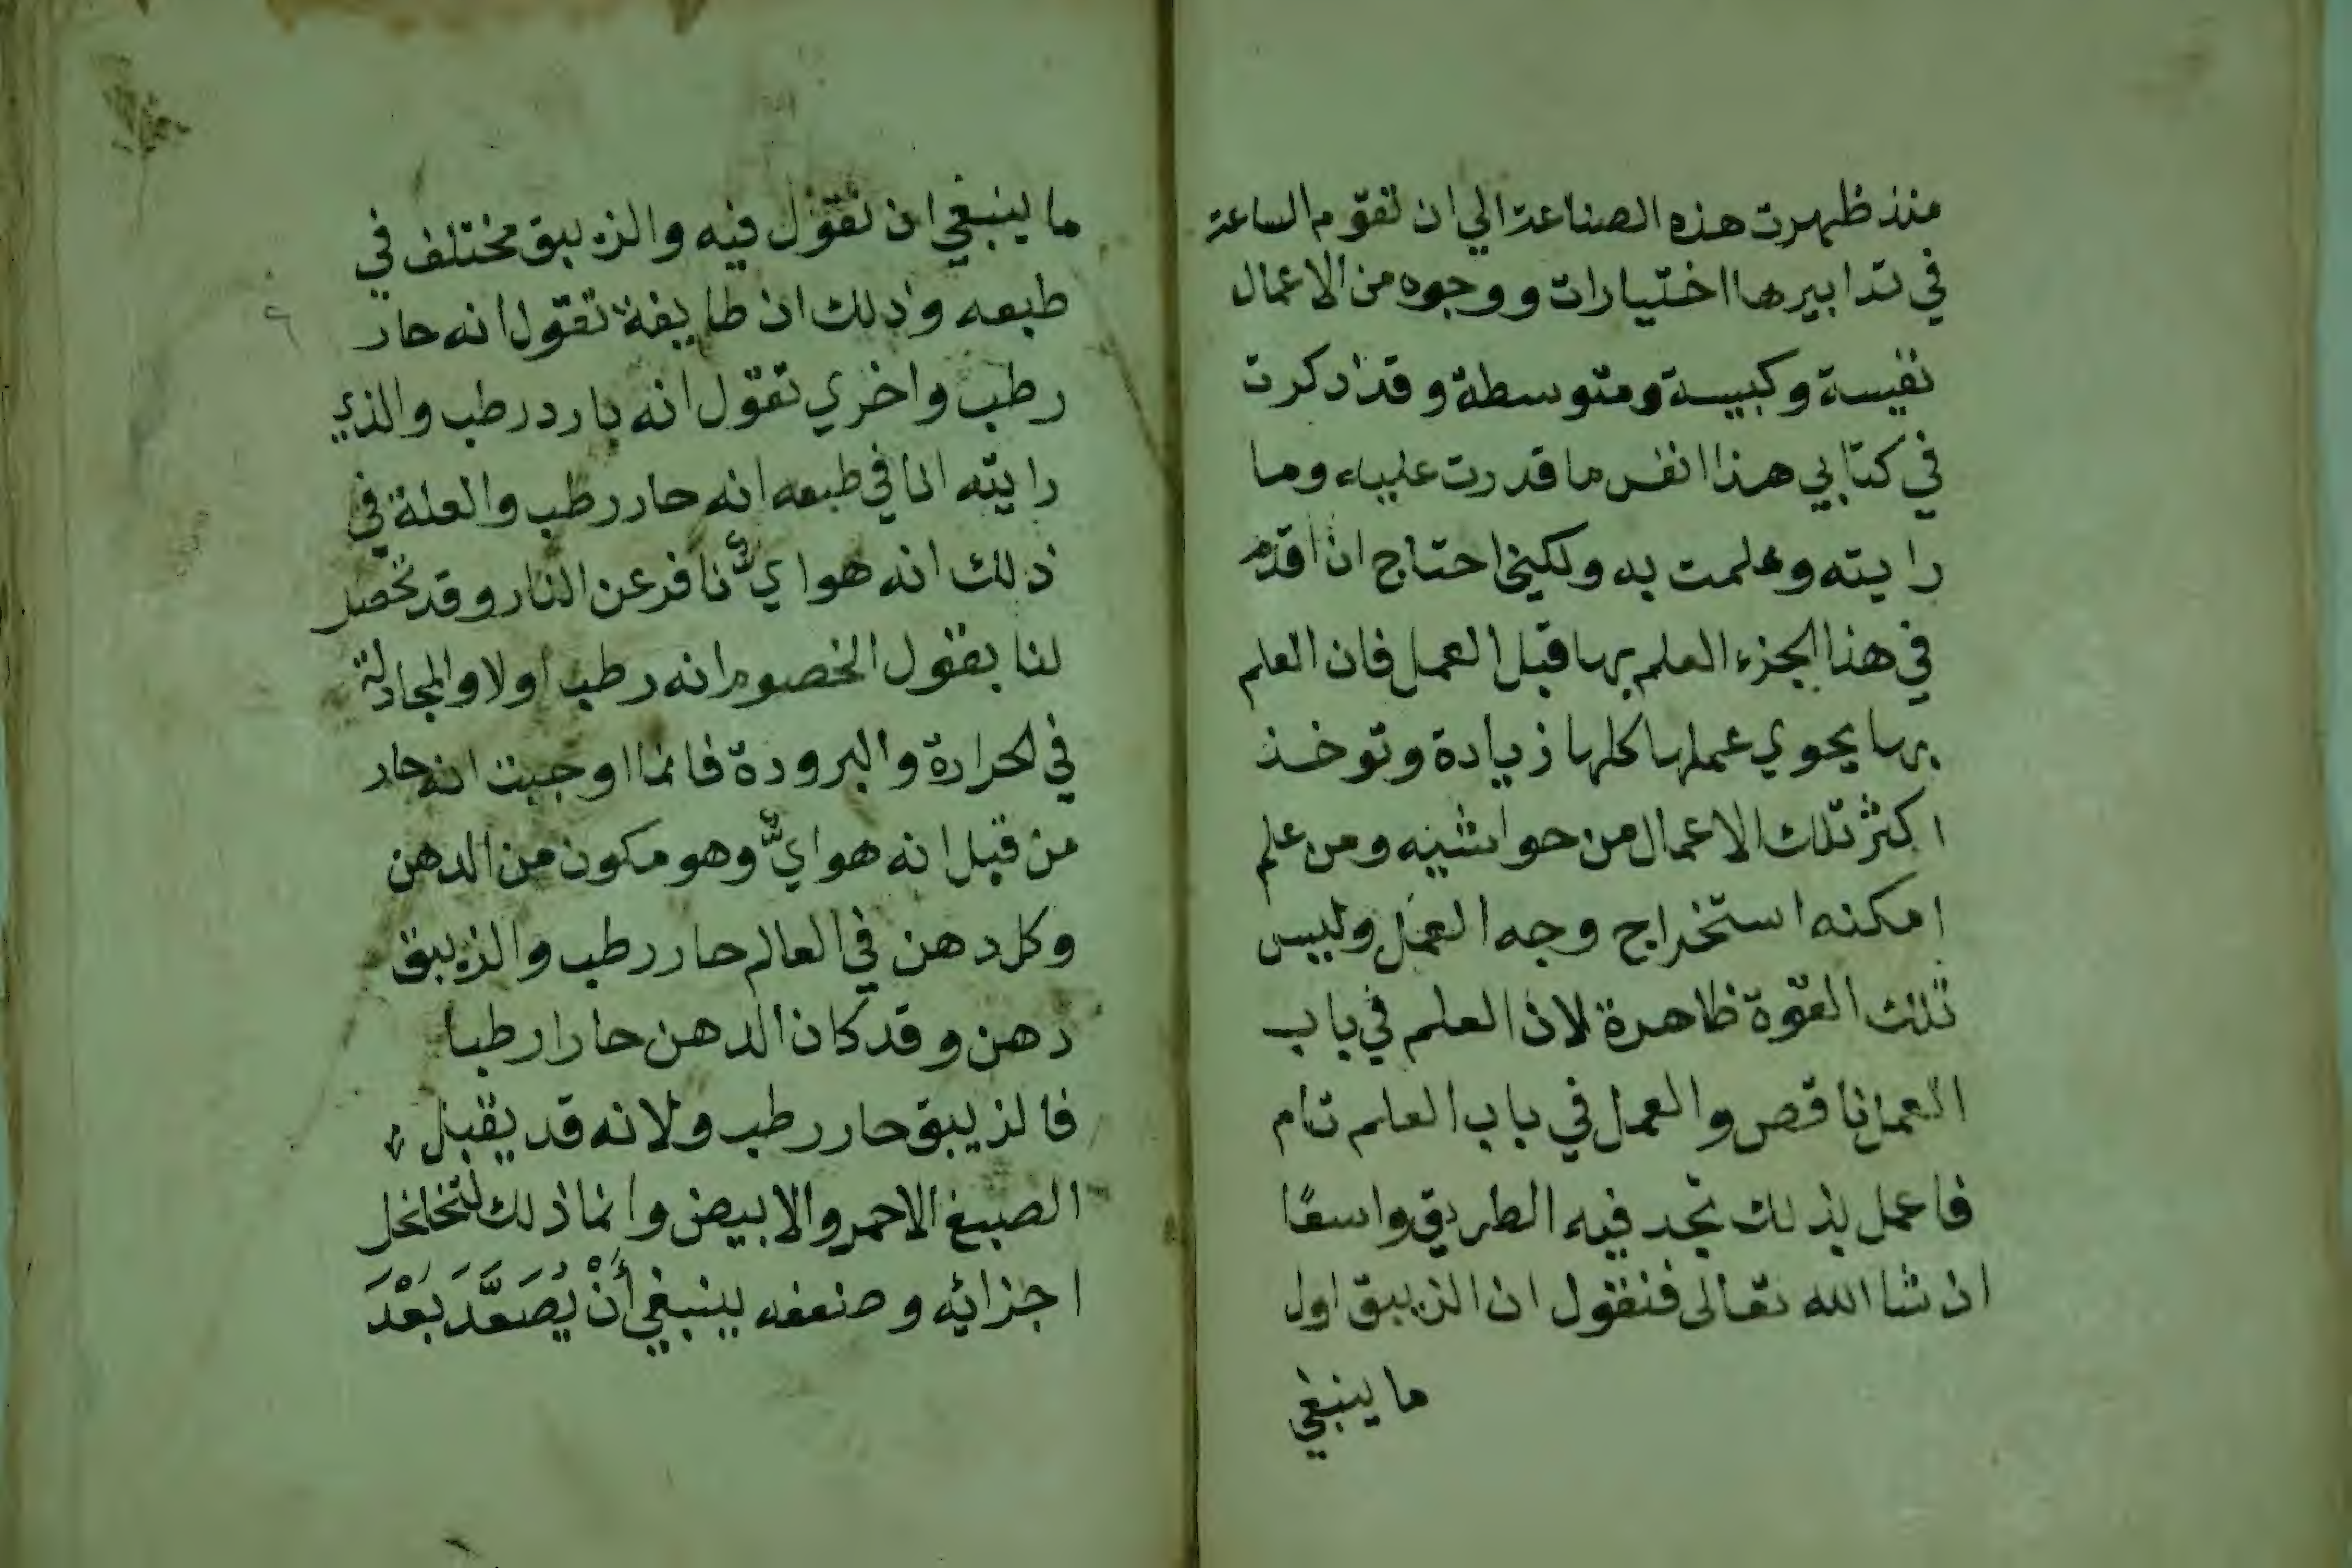 منذ ظهرت هذه الصناعة الي ان تقوم الساعة
في تدابيرها اختيارات ووجوه من الاعمال
نفيسة وكبيسة ومتوسطة وقد ذكرت
في كتابي هذا انفس ما قدرت عليه وما
رايته وعلمت به ولكني احتاج ان اقدم
في هذا الجزء العلم بها قبل العمل فان العلم
بها يحوي عملها كلها زيادة وتوخذ
اكثر تلك الاعمال من حواشيه ومن علم
امكنه استخراج وجه العمل وليس
تلك القوة ظاهرة لان العلم في باب
العمل ناقص والعمل في باب العلم تام
فاعمل بذلك تجد فيه الطريق واسعًا
ان شا الله تعالى فنقول ان الزيبق اول
ما ينبغي
ما ينبغي ان نقول فيه والزيبق مختلف في
طبعه وذلك ان طايفة تقول انه حار
رطب واخري تقول انه بارد رطب والذي
رايته انا في طبعه انه حار رطب والعلة في
ذلك انه هوايٌّ نافر عن النار وقد تحصل
لنا بقول الخصوم انه رطب اولا والمجادلة
في الحرارة والبرودة فانما اوجبت انه حار
من قبل انه هوايٌّ وهو مكون من الدهن
وكل دهن في العالم حار رطب والزيبق
دهن وقد كان الدهن حارا رطبا
فالزيبق حار رطب ولانه قد يقبل
الصبغ الاحمر والابيض وانما ذلك لتخلخل
اجزائه وضعفه ينبغي أَنْ يُصَعَّدَ بَعْدَ